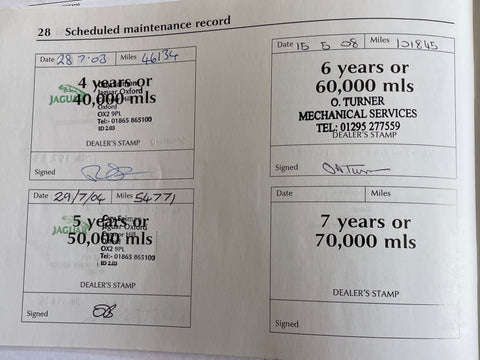 28 Scheduled maintenance record
Date 28 7.03 Miles 46134
4 years or
40,000 mls
JAGUAR
Jaguar Oxford
Oxford
OX2 9PL
Tel:- 01865 865100
ID 2.03
DEALER'S STAMP
Signed
Date 15 5 08 Miles 101845
6 years or
60,000 mls
O. TURNER
MECHANICAL SERVICES
TEL: 01295 277559
DEALER'S STAMP
Signed OATurner
Date 29/7/04 Miles 54771
5 years or
50,000 mls
JAGUAR
Jaguar Oxford
Hill
OX2 9PL
Tel:- 01865 865100
ID 2.03
DEALER'S STAMP
Signed
Date Miles
7 years or
70,000 mls
DEALER'S STAMP
Signed